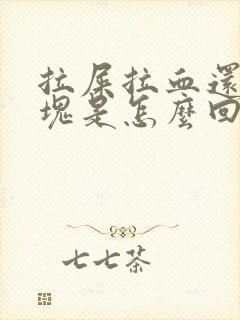 拉屎拉血還
塊是怎麼回
七七茶